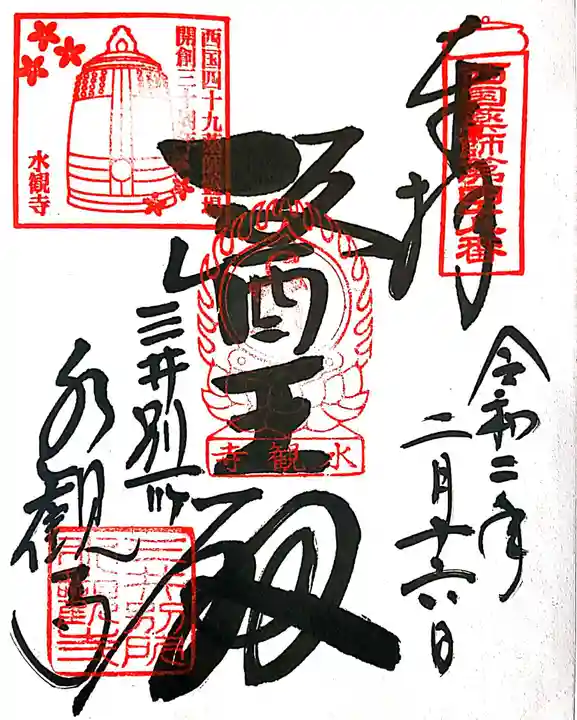 奉拝
西国薬師第四十八番
令和二年
二月十六日
医王殿
水観寺
三井別所
水観寺
三井別所
水観寺
西国四十九薬師霊場
開創三十周年
水観寺